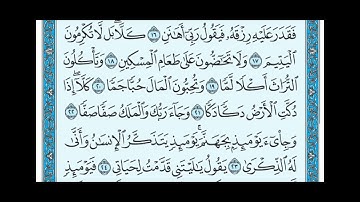 فَقَدَرَ عَلَيْهِ رِزْقَهُۥ فَيَقُولُ رَبِّىٓ أَهَٰنَنِ ١٦ كَلَّا ۖ بَل لَّا تُكْرِمُونَ
ٱلْيَتِيمَ ١٧ وَلَا تَحَٰٓضُّونَ عَلَىٰ طَعَامِ ٱلْمِسْكِينِ ١٨ وَتَأْكُلُونَ
ٱلتُّرَاثَ أَكْلًا لَّمًّا ١٩ وَتُحِبُّونَ ٱلْمَالَ حُبًّا جَمًّا ٢٠ كَلَّآ إِذَا
دُكَّتِ ٱلْأَرْضُ دَكًّا دَكًّا ٢١ وَجَآءَ رَبُّكَ وَٱلْمَلَكُ صَفًّا صَفًّا ٢٢
وَجِا۟ىٓءَ يَوْمَئِذٍۭ بِجَهَنَّمَ ۚ يَوْمَئِذٍ يَتَذَكَّرُ ٱلْإِنسَٰنُ وَأَنَّىٰ
لَهُ ٱلذِّكْرَىٰ ٢٣ يَقُولُ يَٰلَيْتَنِى قَدَّمْتُ لِحَيَاتِى ٢٤ فَيَوْمَئِذٍ